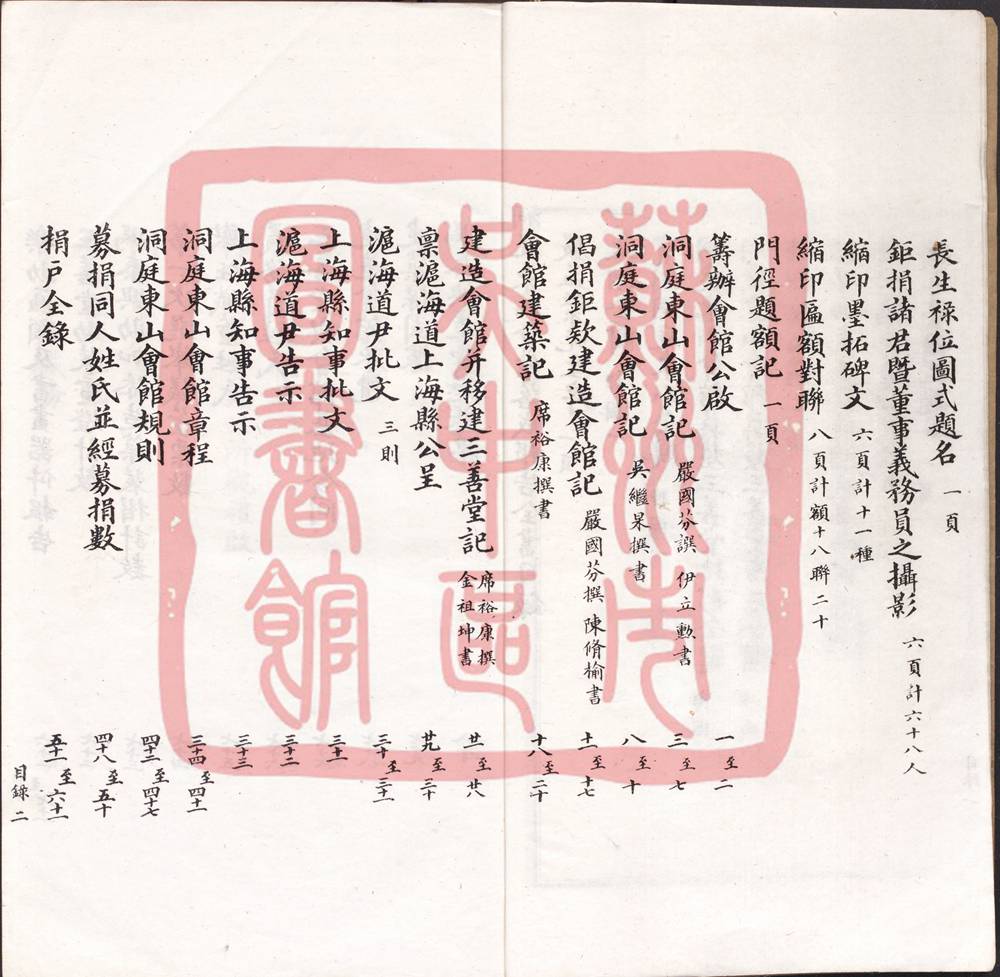 長生祿位圖式題名 一頁
鉅捐諸君暨董事義務員之攝影 六頁計六十八人
縮印墨拓碑文 六頁計十一種
縮印匾額對聯 八頁計額十八聯二十
門徑題額記 一頁
籌辦會館公啟 一至二
洞庭東山會館記 嚴國芬譔 伊立勳書 三至七
洞庭東山會館記 吳繼杲撰書 八至十
倡捐鉅欵建造會館記 嚴國芬撰 陳脩榆書 十一至十七
會館建築記 席裕康撰書 十八至二十
建造會館并移建三善堂記 席裕康撰 金祖坤書 廿一至廿八
禀滬海道上海縣公呈 廿九至三十
滬海道尹批文 三則 三十至三十一
上海縣知事批文 三十一
滬海道尹告示 三十二
上海縣知事告示 三十三
洞庭東山會館章程 三十四至四十一
洞庭東山會館規則 四十二至四十七
募捐同人姓氏並經募捐數 四十八至五十
捐戶全錄 五十一至六十一
目錄 二
蘇州市
吳中區
圖書館